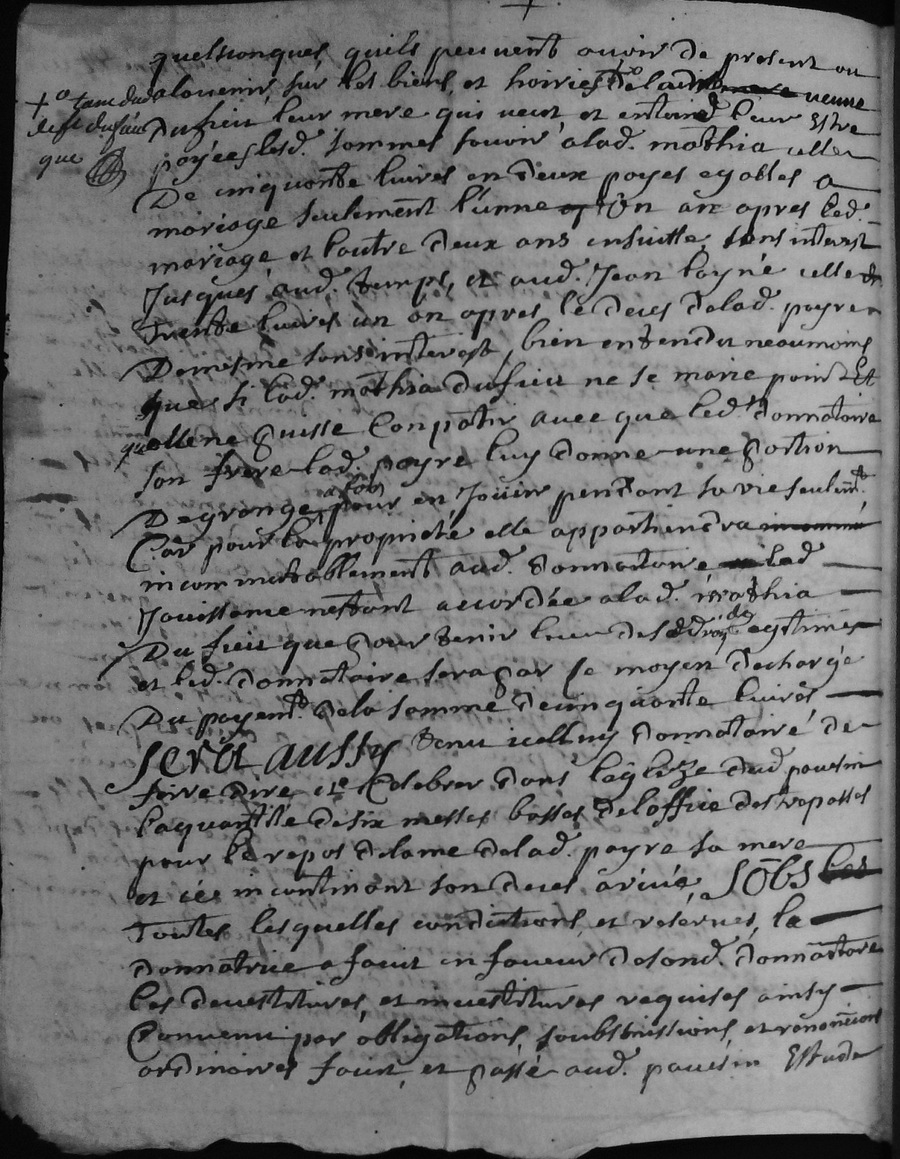 quelsconques, quils peuvent avoir de present ou
alavenir, sur les biens, et hoiries de lad. veuve
+ tant dud
deft. dufieu
que
Dufieu leur mere qui veut et entand leur Estre
payées lesd. sommes savoir alad. mathia celle
De cinquante livres en deux payes egables a
mariage seulement l'unne Un an apres led.
mariage et l'autre deux ans ensuitte, sans interest
Jusques aud. temps, et aud. Jean layné celle de
trente livres un an apres le deces de lad. payre
De mesme sans interest, bien entendu neaumoins
que si lad. mathia Dufieu ne se marie point Et
quellene puisse Conpatir avec que led. donnataire
son frere lad. payre luy donne une portion
De grange pour en Jouir pendant sa vie seulemt.
Car pour la proprieté elle appartiendra
incommutablement aud. donnataire lad
Jouissance nestant accordée alad. mathia
Du fieu que pour tenir lieu de sesd. droits de legitime
et led. donnataire sera par se moyen decharge
Du payemt. dela somme de cinquante livres
Sera aussy tenu icelluy donnataire de
faire dire et Celebrer dans leglize dud pousin
la quantité de six messes basses del office des trepasses
pour le repos de lame de lad. payre sa mere
et ce incontinant son deces arivé, Soubs
Toutes lesquelles conditions, et reserves, la
donnatrice a faict en faveur de sond. donnataire
les devestitures, et investitures requises ainsy
Convenu par obligations, soubsmissions, et renonciations
ordinaires faict, et passé aud. pousin Estude